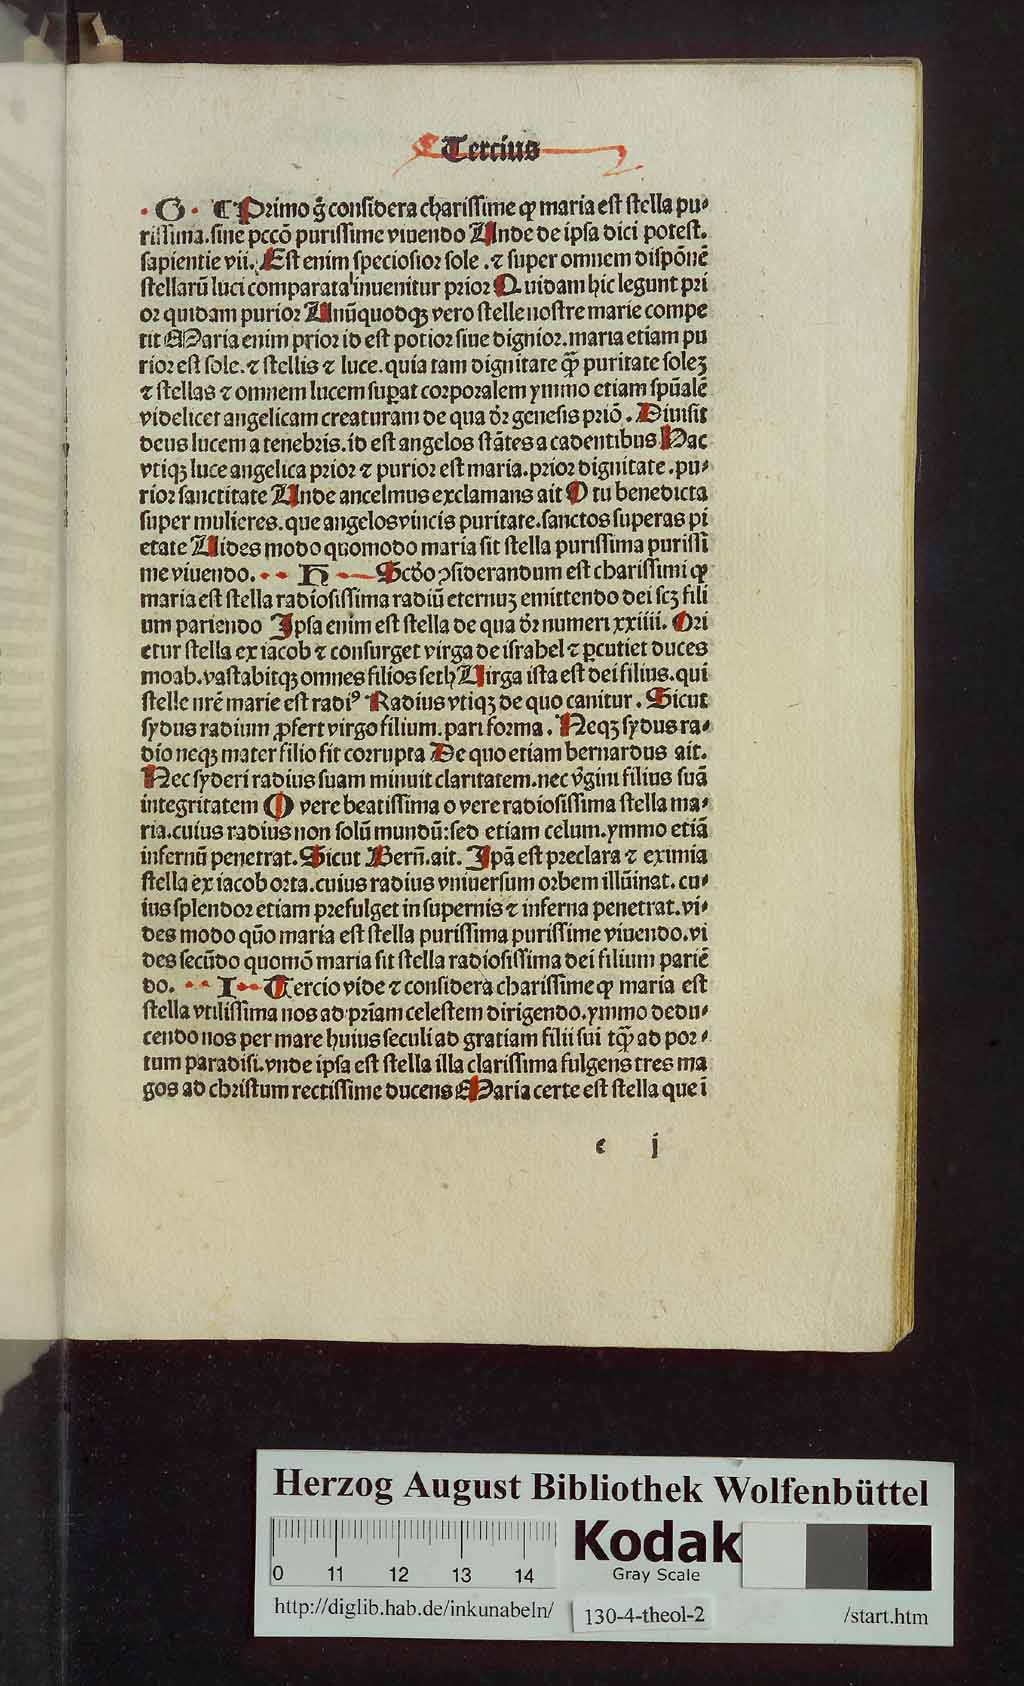 Tercius
· G · ¶ Primo g̃ considera charissime ꝙ maria est stella pu⸗
rissima.sine pccõ purissime viuendo Unde de ipsa dici potest.
sapientie vii. Est enim speciosior sole .⁊ super omnem dispõnẽ
stellarũ luci comparata inuenitur prior Quidam hic legunt pri
or quidam purior Unũquodqꝫ vero stelle nostre marie compe
tit Maria enim prior id est potior siue dignior.maria etiam pu
rior est sole.⁊ stellis ⁊ luce.quia tam dignitate q̃ꝫ puritate soleꝫ
⁊ stellas ⁊ omnem lucem suꝑat corporalem ymmo etiam spũalẽ
videlicet angelicam creaturam de qua dr̃ genesis priõ . Diuisit
deus lucem a tenebris.id est angelos stãtes a cadentibus Hac
vtiqꝫ luce angelica prior ⁊ purior est maria.prior dignitate .pu⸗
rior sanctitate Unde ancelmus exclamans ait O tu benedicta
super mulieres.que angelos vincis puritate.sanctos superas pi
etate Uides modo quomodo maria sit stella purissima purissi
me viuendo. · · H · Scdõ ꝯsiderandum est charissimi ꝙ
maria est stella radiosissima radiũ eternuꝫ emittendo dei scꝫ fili
um pariendo Ipsa enim est stella de qua dr̃ numeri xxiiii. Ori
etur stella ex iacob ⁊ consurget virga de israhel ⁊ ꝑcutiet duces
moab.vastabitqꝫ omnes filios seth Uirga ista est dei filius.qui
stelle nrẽ marie est radiꝰ Radius vtiqꝫ de quo canitur . Sicut
sydus radium ꝓfert virgo filium.pari forma . Neqꝫ sydus ra⸗
dio neqꝫ mater filio fit corrupta De quo etiam bernardus ait.
Nec syderi radius suam minuit claritatem.nec v̾gini filius suã
integritatem O vere beatissima o vere radiosissima stella ma⸗
ria.cuius radius non solũ mundũ:sed etiam celum.ymmo etiã
infernũ penetrat.Sicut Berñ.ait. Ipã est preclara ⁊ eximia
stella ex iacob orta.cuius radius vniuersum orbem illũinat. cu⸗
ius splendor etiam prefulget in supernis ⁊ inferna penetrat.vi⸗
des modo quõ maria est stella purissima purissime viuendo.vi
des secũdo quomõ maria sit stella radiosissima dei filium pariẽ
do. · · I · · Tercio vide ⁊ considera charissime ꝙ maria est
stella vtilissima nos ad priam̃ celestem dirigendo.ymmo dedu⸗
cendo nos per mare huius seculi ad gratiam filii sui tq̃ꝫ ad por⸗
tum paradisi.vnde ipsa est stella illa clarissima fulgens tres ma
gos ad christum rectissime ducens Maria certe est stella que ĩ
e j
Herzog August Bibliothek Wolfenbüttel
0 11 12 13 14
Kodak
Gray Scale
http://diglib.hab.de/inkunabeln/ 130-4-theol-2 /start.htm